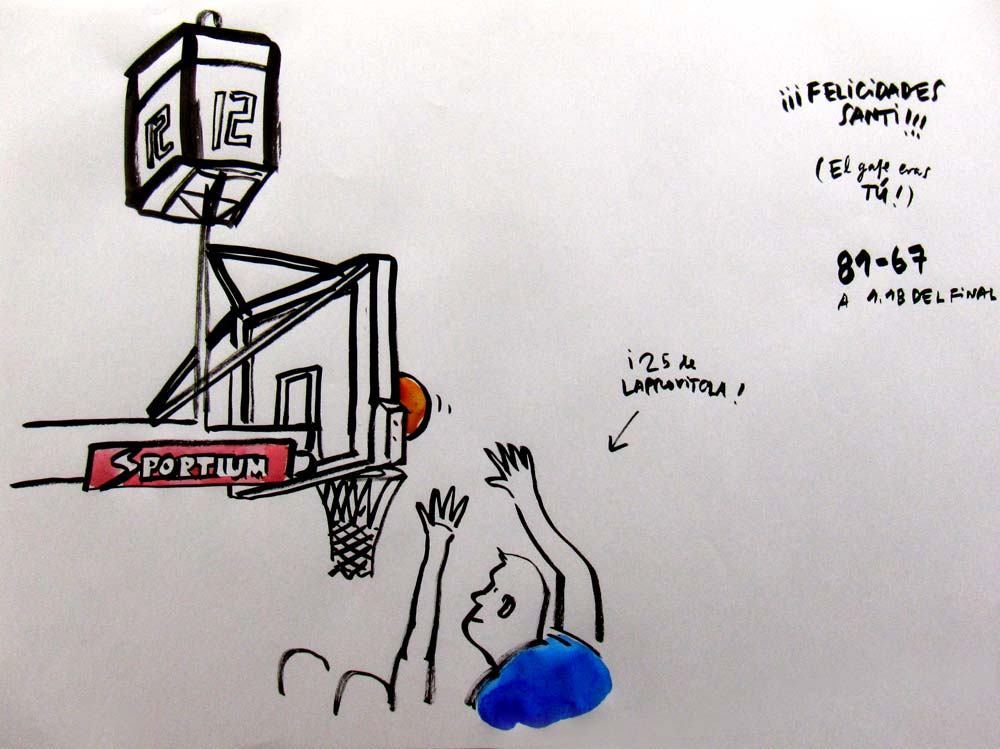 12
12
¡¡¡FELICIDADES
SANTI!!!
(El gafe eras
TÚ!)
81-67
A 1.18 DEL FINAL
¡25 de
LAPROVITOLA!
SPORTIUM